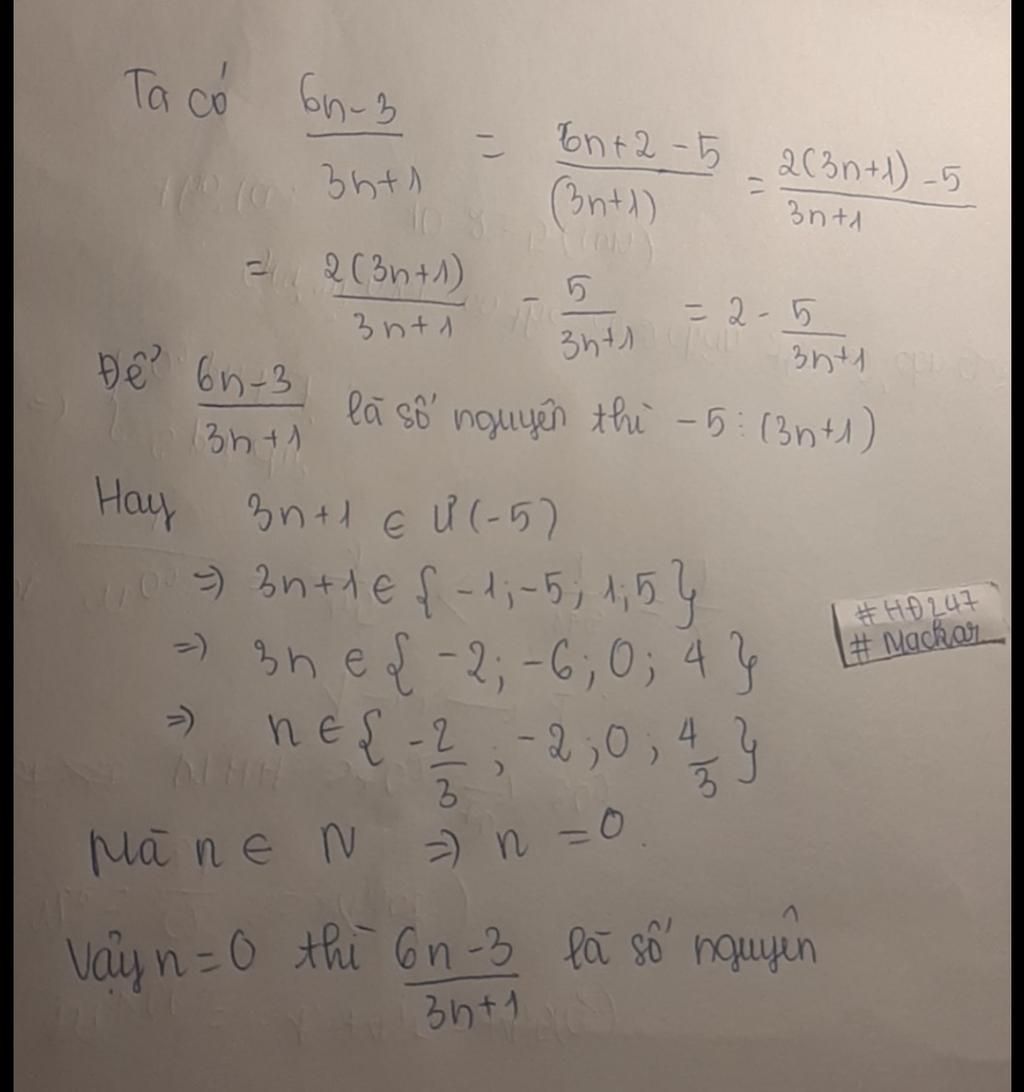 Ta có \frac{6n-3}{3n+1} = \frac{6n+2-5}{(3n+1)} = \frac{2(3n+1)-5}{3n+1}
= \frac{2(3n+1)}{3n+1} - \frac{5}{3n+1} = 2 - \frac{5}{3n+1}
Để \frac{6n-3}{3n+1} là số nguyên thì -5 ⋮ (3n+1)
Hay 3n+1 ∈ Ư(-5)
=> 3n+1 ∈ { -1; -5; 1; 5 }
#HĐ247
#Mackar
=> 3n ∈ { -2; -6; 0; 4 }
=> n ∈ { -\frac{2}{3}; -2; 0; \frac{4}{3} }
Mà n ∈ N => n = 0.
Vậy n = 0 thì \frac{6n-3}{3n+1} là số nguyên